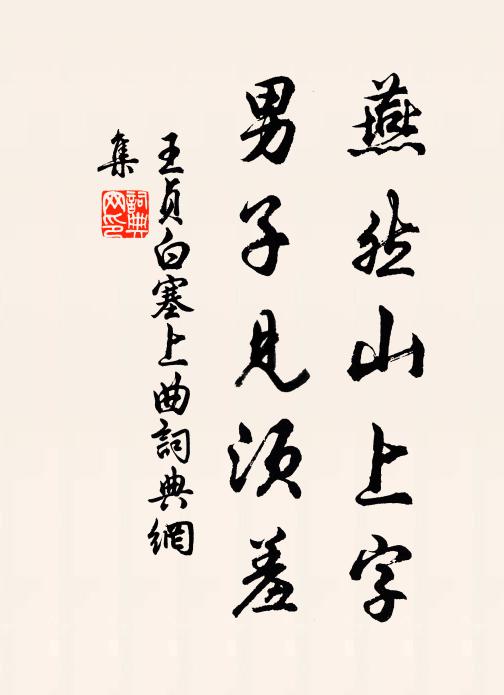 燕然山上字
男子見須羞
王貞白塞上曲詞典網
集
詞典
网印